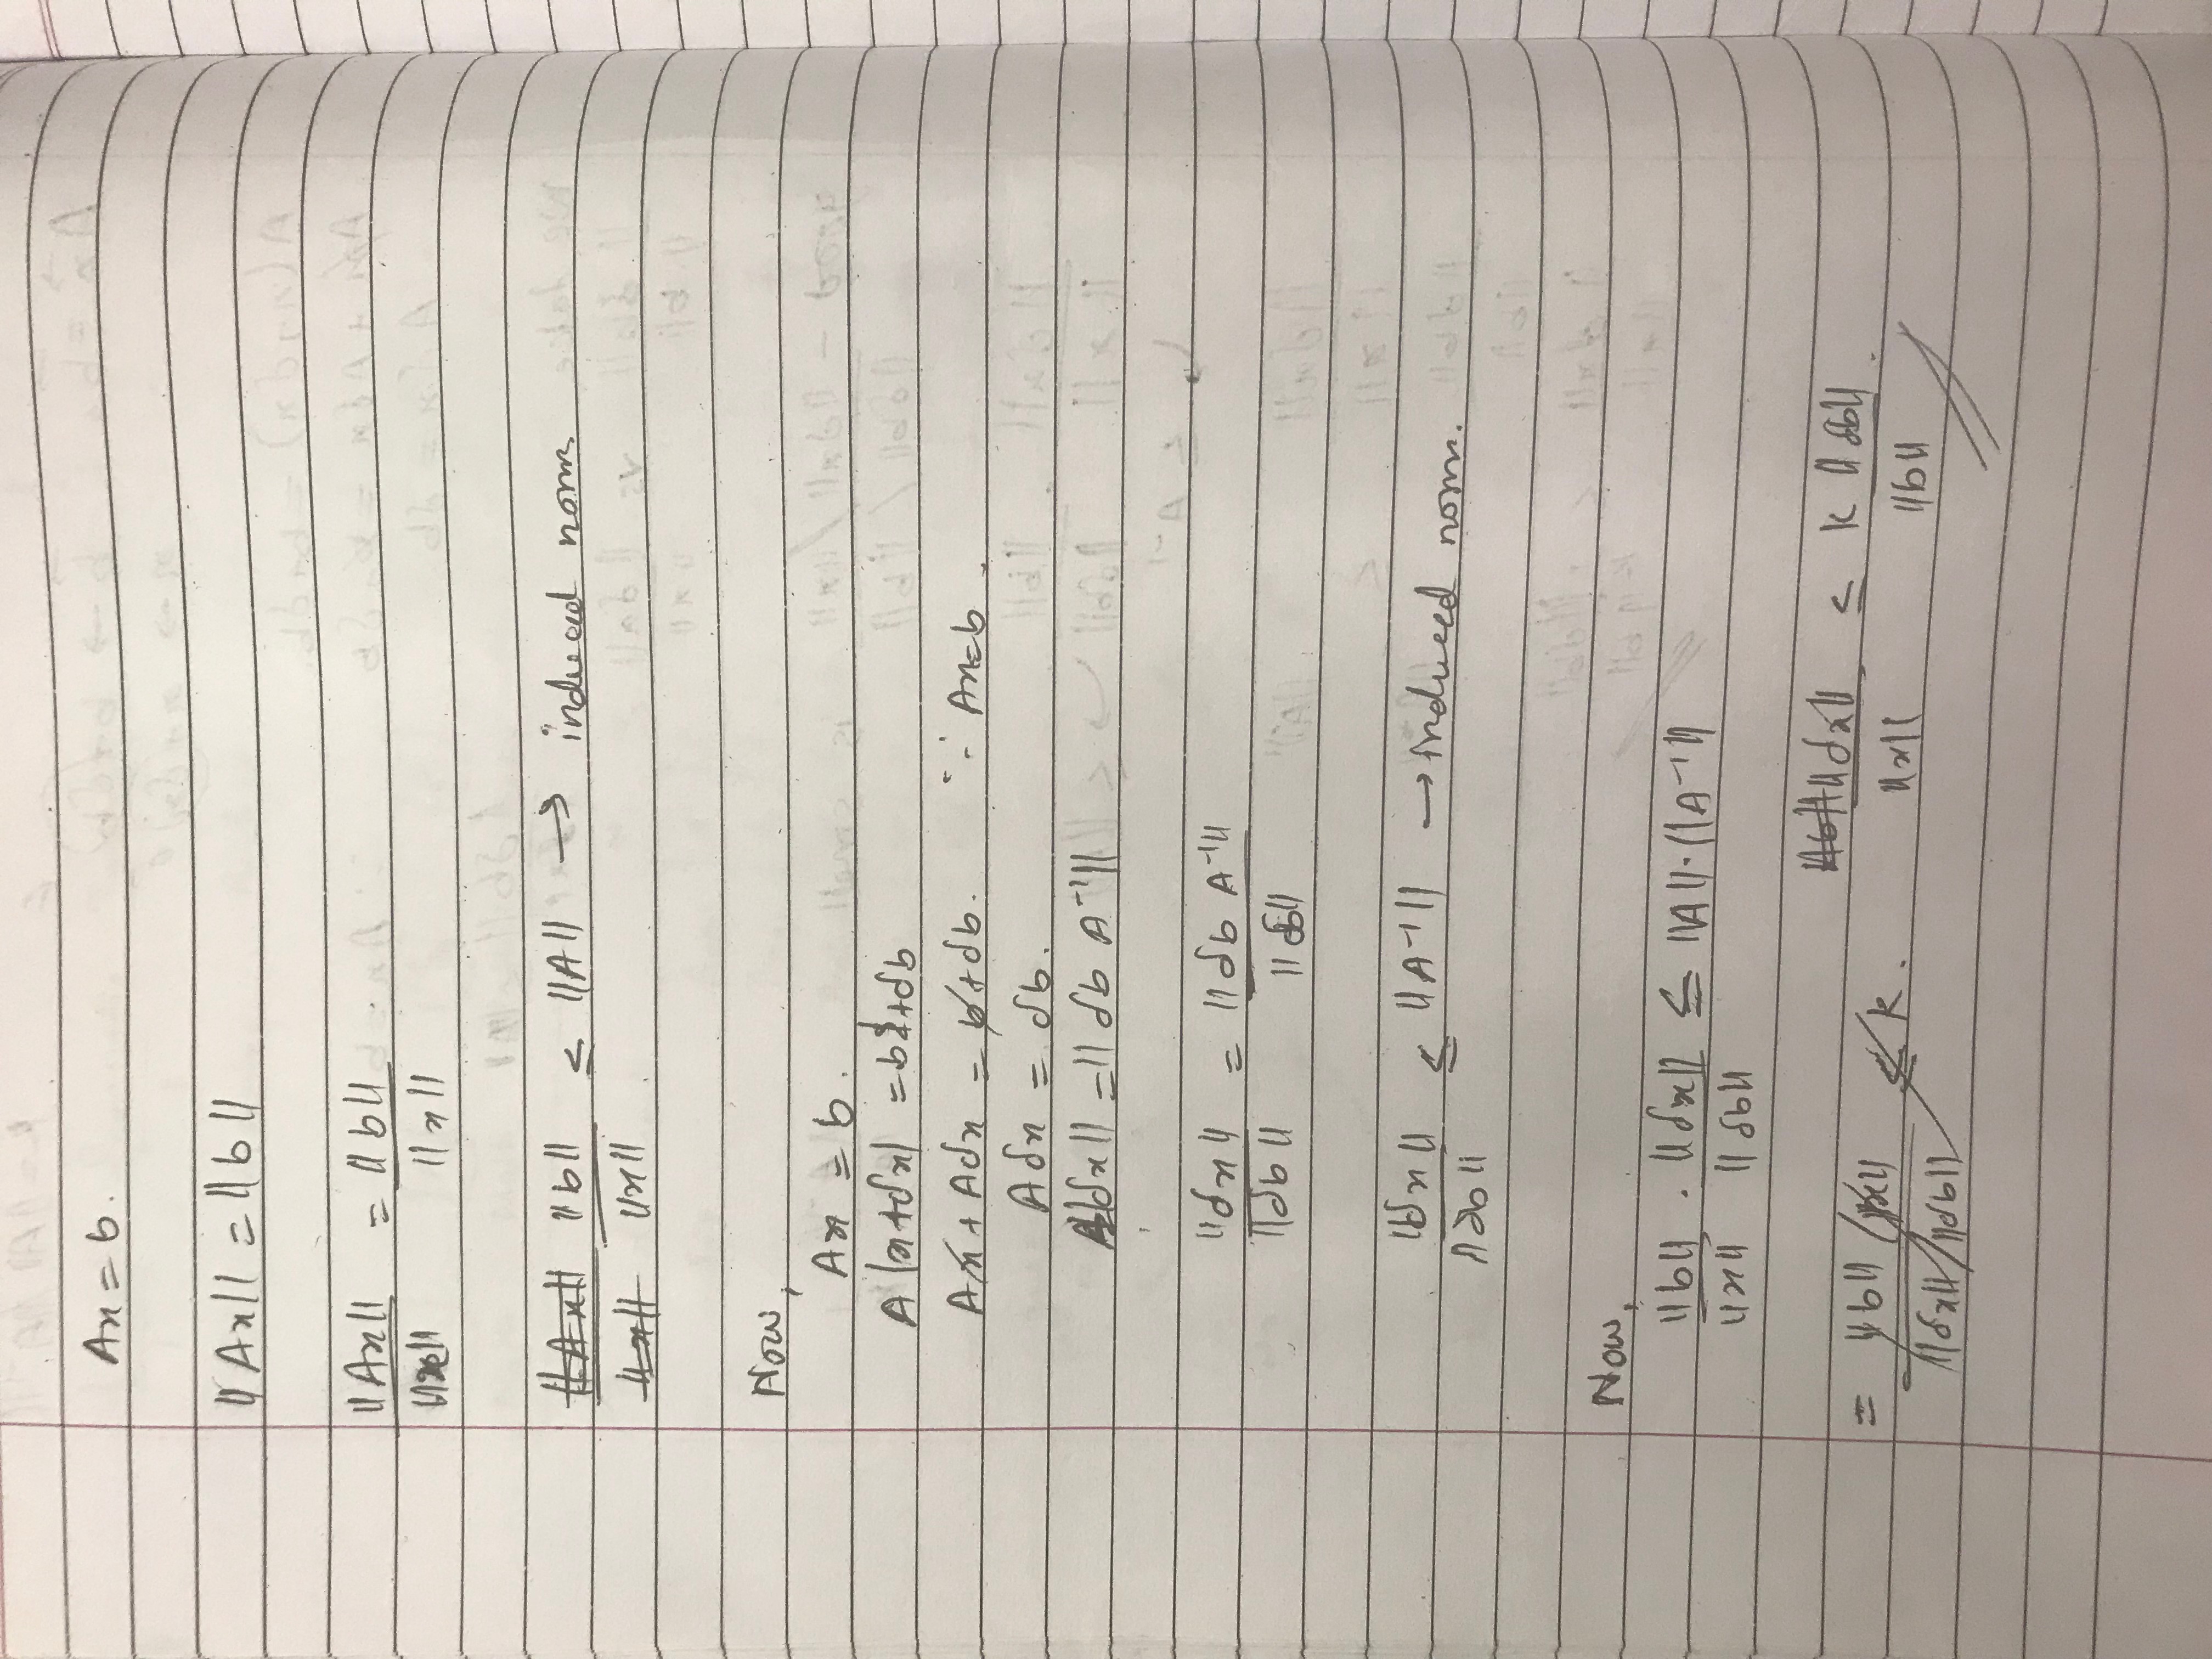 Ax = b.
||Ax|| = ||b||
||Ax|| / ||x|| = ||b|| / ||x||
||Ax|| / ||x|| ||b|| / ||x|| ≤ ||A|| → induced norm
Now,
Ax = b.
A(x+δx) = b+δb
Ax + Aδx = b+δb. ∵ Ax=b.
Aδx = δb.
||δx|| = ||δb A⁻¹||
||δx|| / ||δb|| = ||δb A⁻¹|| / ||δb||
||δx|| / ||δb|| ≤ ||A⁻¹|| → induced norm.
Now,
||b|| / ||x|| · ||δx|| / ||δb|| ≤ ||A||·||A⁻¹||
= ||b|| / ||x|| / ||δx|| / ||δb|| ≤ k. ||b|| ||δx|| / ||x|| ≤ k ||δb|| / ||b||.